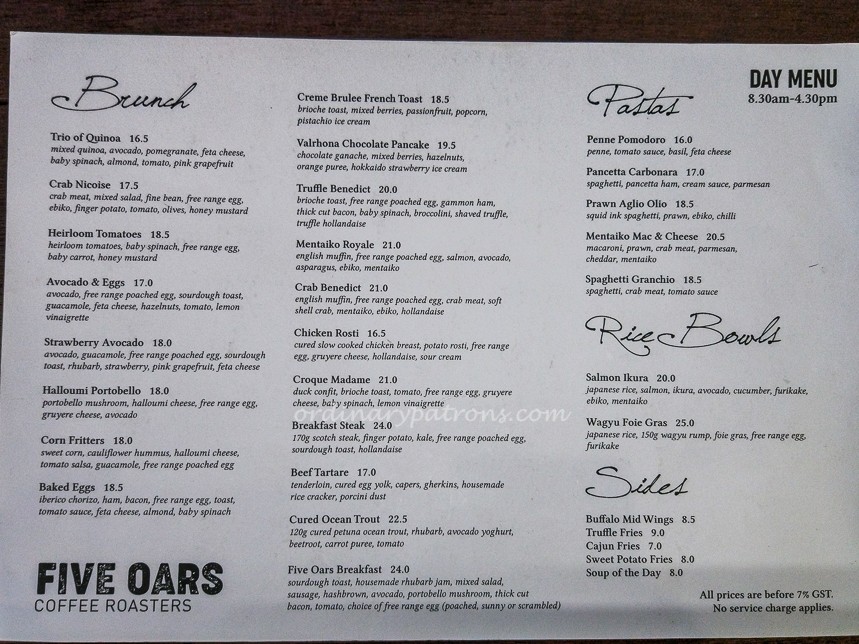 Brunch
Trio of Quinoa 16.5
mixed quinoa, avocado, pomegranate, feta cheese,
baby spinach, almond, tomato, pink grapefruit
Crab Nicoise 17.5
crab meat, mixed salad, fine bean, free range egg,
ebiko, finger potato, tomato, olives, honey mustard
Heirloom Tomatoes 18.5
heirloom tomatoes, baby spinach, free range egg,
baby carrot, honey mustard
Avocado & Eggs 17.0
avocado, free range poached egg, sourdough toast,
guacamole, feta cheese, hazelnuts, tomato, lemon
vinaigrette
Strawberry Avocado 18.0
avocado, guacamole, free range poached egg, sourdough
toast, rhubarb, strawberry, pink grapefruit, feta cheese
Halloumi Portobello 18.0
portobello mushroom, halloumi cheese, free range egg,
gruyere cheese, avocado
Corn Fritters 18.0
sweet corn, cauliflower hummus, halloumi cheese,
tomato salsa, guacamole, free range poached egg
Baked Eggs 18.5
iberico chorizo, ham, bacon, free range egg, toast,
tomato sauce, feta cheese, almond, baby spinach
FIVE OARS
COFFEE ROASTERS
Creme Brulee French Toast 18.5
brioche toast, mixed berries, passionfruit, popcorn,
pistachio ice cream
Valrhona Chocolate Pancake 19.5
chocolate ganache, mixed berries, hazelnuts,
orange puree, hokkaido strawberry ice cream
Truffle Benedict 20.0
brioche toast, free range poached egg, gammon ham,
thick cut bacon, baby spinach, broccolini, shaved truffle,
truffle hollandaise
Mentaiko Royale 21.0
english muffin, free range poached egg, salmon, avocado,
asparagus, ebiko, mentaiko
Crab Benedict 21.0
english muffin, free range poached egg, crab meat, soft
shell crab, mentaiko, ebiko, hollandaise
Chicken Rosti 16.5
cured slow cooked chicken breast, potato rosti, free range
egg, gruyere cheese, hollandaise, sour cream
Croque Madame 21.0
duck confit, brioche toast, tomato, free range egg, gruyere
cheese, baby spinach, lemon vinaigrette
ordinarypatrons.com
Breakfast Steak 24.0
170g scotch steak, finger potato, kale, free range poached egg,
sourdough toast, hollandaise
Beef Tartare 17.0
tenderloin, cured egg yolk, capers, gherkins, housemade
rice cracker, porcini dust
Cured Ocean Trout 22.5
120g cured petuna ocean trout, rhubarb, avocado yoghurt,
beetroot, carrot puree, tomato
Five Oars Breakfast 24.0
sourdough toast, housemade rhubarb jam, mixed salad,
sausage, hashbrown, avocado, portobello mushroom, thick cut
bacon, tomato, choice of free range egg (poached, sunny or scrambled)
DAY MENU
8.30am-4.30pm
Pastas
Penne Pomodoro 16.0
penne, tomato sauce, basil, feta cheese
Pancetta Carbonara 17.0
spaghetti, pancetta ham, cream sauce, parmesan
Prawn Aglio Olio 18.5
squid ink spaghetti, prawn, ebiko, chilli
Mentaiko Mac & Cheese 20.5
macaroni, prawn, crab meat, parmesan,
cheddar, mentaiko
Spaghetti Granchio 18.5
spaghetti, crab meat, tomato sauce
Rice Bowls
Salmon Ikura 20.0
japanese rice, salmon, ikura, avocado, cucumber, furikake,
ebiko, mentaiko
Wagyu Foie Gras 25.0
japanese rice, 150g wagyu rump, foie gras, free range egg,
furikake
Sides
Buffalo Mid Wings 8.5
Truffle Fries 9.0
Cajun Fries 7.0
Sweet Potato Fries 8.0
Soup of the Day 8.0
All prices are before 7% GST.
No service charge applies.